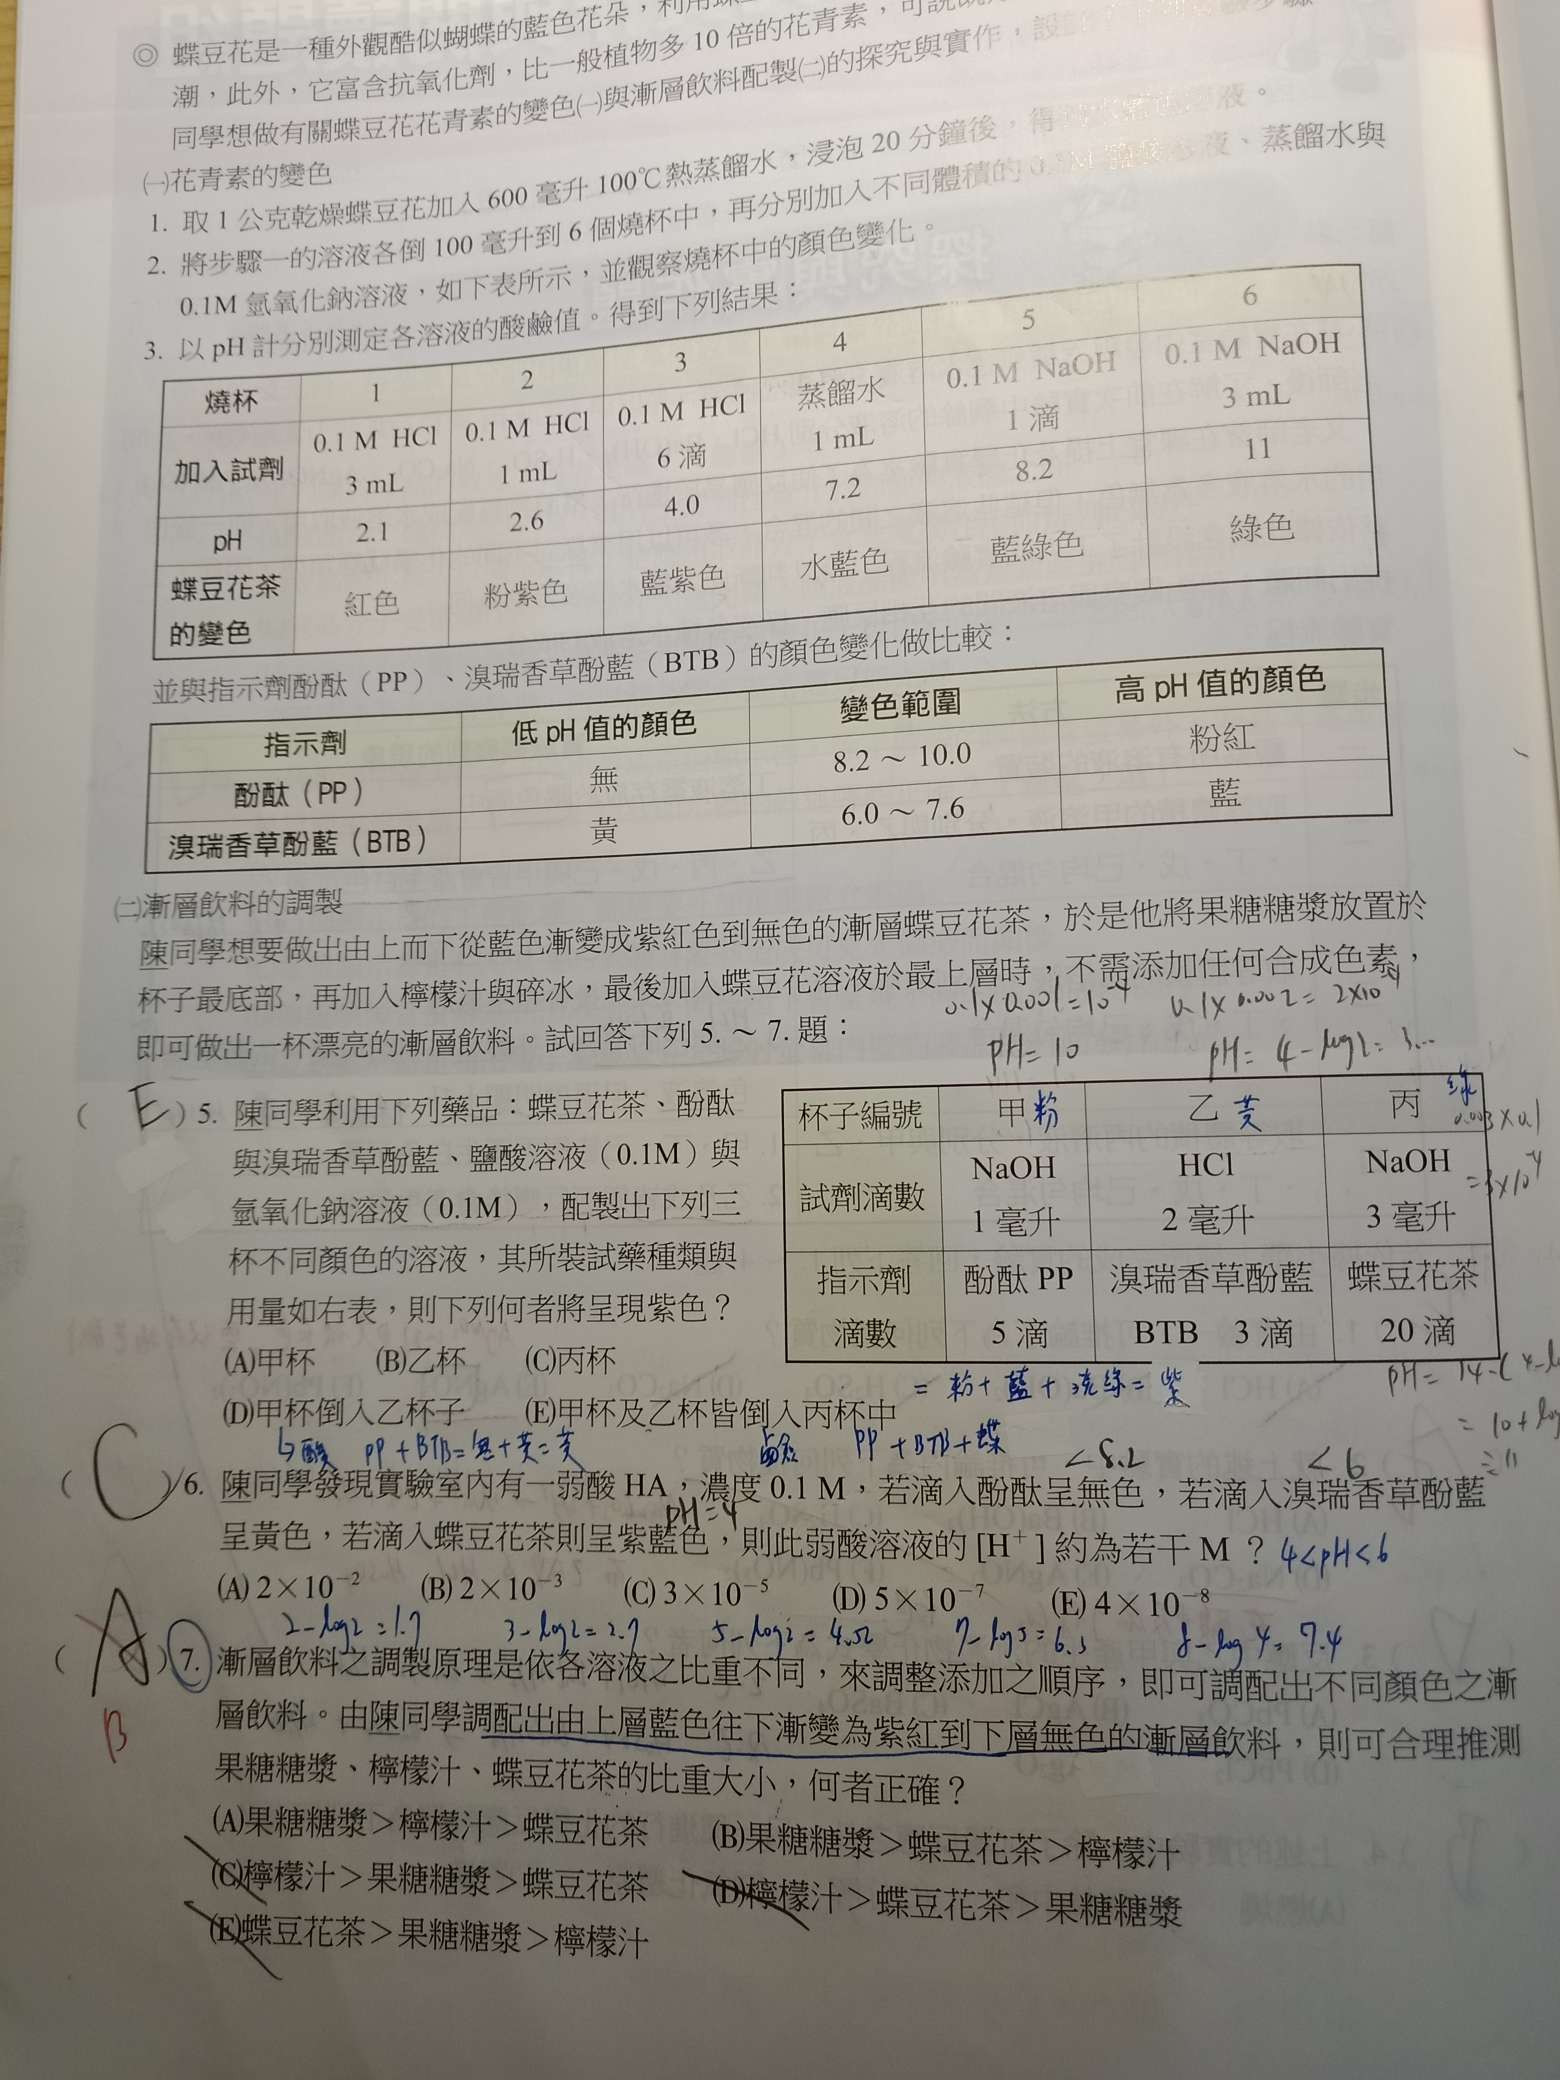 ◎ 蝶豆花是一種外觀酷似蝴蝶的藍色花朵，利用
潮，此外，它富含抗氧化劑，比一般植物多 10 倍的花青素，可說
同學想做有關蝶豆花花青素的變色㈠與漸層飲料配製㈡的探究與實作，設
㈠花青素的變色
1. 取 1 公克乾燥蝶豆花加入 600 毫升 100℃熱蒸餾水，浸泡 20 分鐘後，得 液。
2. 將步驟一的溶液各倒 100 毫升到 6 個燒杯中，再分別加入不同體積的 液、蒸餾水與
0.1M 氫氧化鈉溶液，如下表所示，並觀察燒杯中的顏色變化。
3. 以 pH 計分別測定各溶液的酸鹼值。得到下列結果：
燒杯 1 2 3 4 5 6
加入試劑 0.1 M HCl 3 mL 0.1 M HCl 1 mL 0.1 M HCl 6 滴 蒸餾水 1 mL 0.1 M NaOH 1 滴 0.1 M NaOH 3 mL
pH 2.1 2.6 4.0 7.2 8.2 11
蝶豆花茶的變色 紅色 粉紫色 藍紫色 水藍色 藍綠色 綠色
並與指示劑酚酞（PP）、溴瑞香草酚藍（BTB）的顏色變化做比較：
指示劑 低 pH 值的顏色 變色範圍 高 pH 值的顏色
酚酞（PP） 無 8.2 ～ 10.0 粉紅
溴瑞香草酚藍（BTB） 黃 6.0 ～ 7.6 藍
㈡漸層飲料的調製
陳同學想要做出由上而下從藍色漸變成紫紅色到無色的漸層蝶豆花茶，於是他將果糖糖漿放置於
杯子最底部，再加入檸檬汁與碎冰，最後加入蝶豆花溶液於最上層時，不需添加任何合成色素，
即可做出一杯漂亮的漸層飲料。試回答下列 5. ～ 7. 題：
0.1×0.001=10⁻⁴ 0.1×0.002=2×10⁻⁴
pH=10 pH=4-log2=3...
( E ) 5. 陳同學利用下列藥品：蝶豆花茶、酚酞
與溴瑞香草酚藍、鹽酸溶液（0.1M）與
氫氧化鈉溶液（0.1M），配製出下列三
杯不同顏色的溶液，其所裝試藥種類與
用量如右表，則下列何者將呈現紫色？
(A)甲杯 (B)乙杯 (C)丙杯
(D)甲杯倒入乙杯子 (E)甲杯及乙杯皆倒入丙杯中
杯子編號 甲 粉 乙 黃 丙 綠
0.003×0.1
=3×10⁻⁴
試劑滴數 NaOH 1 毫升 HCl 2 毫升 NaOH 3 毫升
指示劑滴數 酚酞 PP 5 滴 溴瑞香草酚藍 BTB 3 滴 蝶豆花茶 20 滴
= 粉+藍+淺綠=紫
pH=14-(4-lo
=10+log
=11
↳酸 PP+BTB=無+黃=黃 鹼 PP+BTB+蝶
<8.2 <6
( C ) 6. 陳同學發現實驗室內有一弱酸 HA，濃度 0.1 M，若滴入酚酞呈無色，若滴入溴瑞香草酚藍
pH=4
呈黃色，若滴入蝶豆花茶則呈紫藍色，則此弱酸溶液的 [H⁺] 約為若干 M ？ 4<pH<6
(A) 2×10⁻² (B) 2×10⁻³ (C) 3×10⁻⁵ (D) 5×10⁻⁷ (E) 4×10⁻⁸
2-log2=1.7 3-log2=2.7 5-log3=4.52 7-log5=6.3 8-log4=7.4
( A ) 7. 漸層飲料之調製原理是依各溶液之比重不同，來調整添加之順序，即可調配出不同顏色之漸
B
層飲料。由陳同學調配出由上層藍色往下漸變為紫紅到下層無色的漸層飲料，則可合理推測
果糖糖漿、檸檬汁、蝶豆花茶的比重大小，何者正確？
(A)果糖糖漿＞檸檬汁＞蝶豆花茶 (B)果糖糖漿＞蝶豆花茶＞檸檬汁
(C)檸檬汁＞果糖糖漿＞蝶豆花茶 (D)檸檬汁＞蝶豆花茶＞果糖糖漿
(E)蝶豆花茶＞果糖糖漿＞檸檬汁